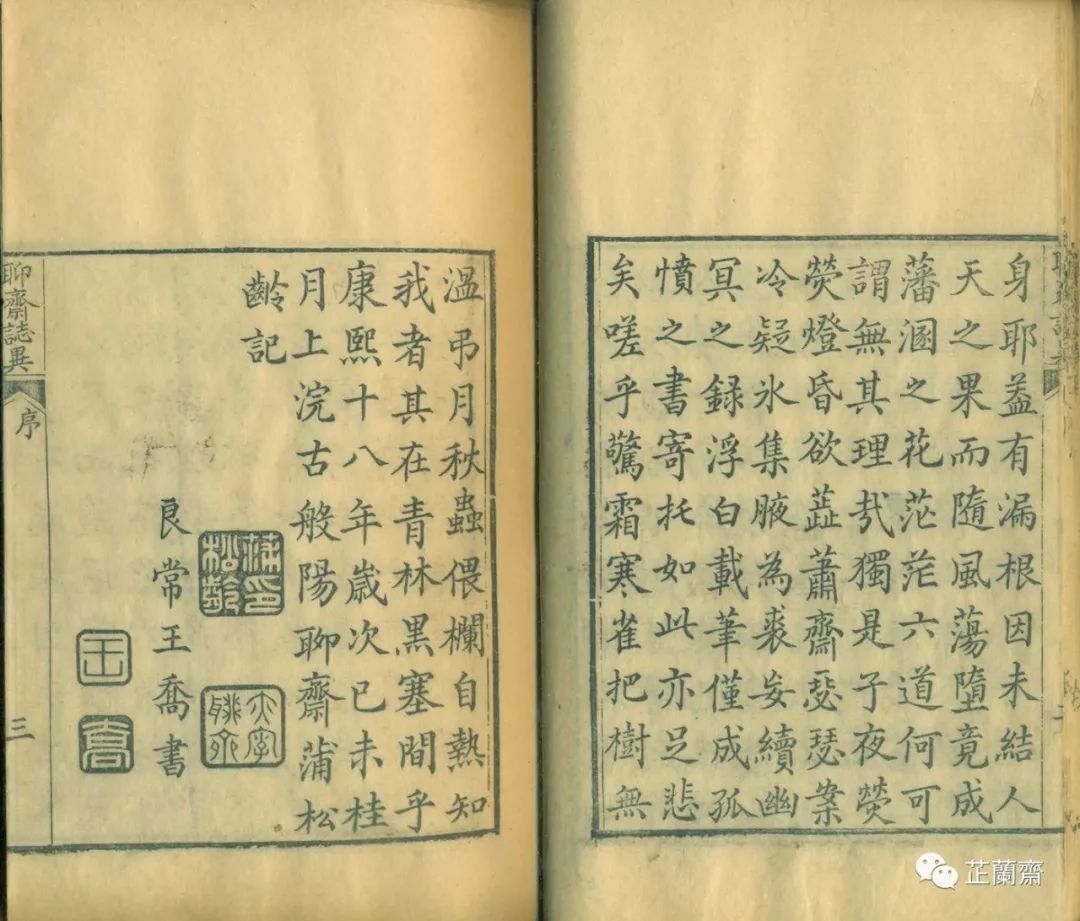 身耶葢有漏根因未結人
天之果而隨風蕩墮竟成
藩溷之花茫茫六道何可
謂無其理哉獨是子夜熒
熒燈昏欲蕋蕭齋瑟瑟案
冷疑氷集腋為裘妄續幽
冥之録浮白載筆僅成孤
憤之書寄托如此亦足悲
矣嗟乎驚霜寒雀把樹無
溫弔月秋蟲偎欄自熱知
我者其在青林黑塞間乎
康熙十八年歲次已未桂
月上浣古般陽聊齋蒲松
齡記
蒲印松齡
良常王喬書
王
喬
聊齋誌異
序
三
芷蘭齋